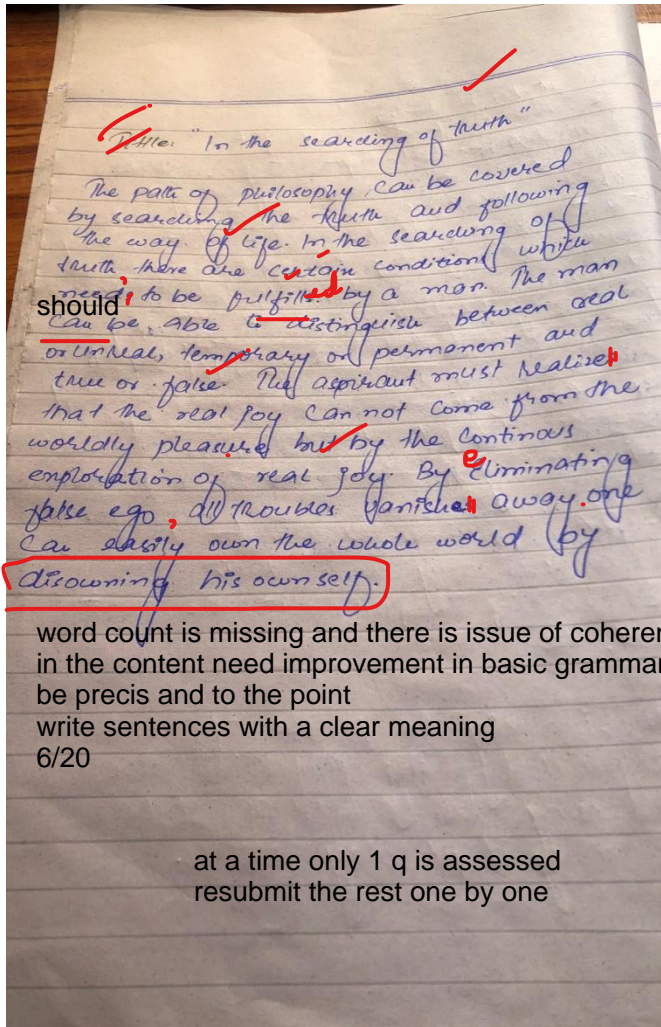 Title: "In the searching of truth"
The path of philosophy can be covered
by searching the truth and following
the way of life. In the searching of
truth, there are certain conditions which
need, to be fulfilled by a man. The man
should
can be able to distinguish between real
or unreal, temporary or permanent and
true or false. The aspirant must realize
that the real joy can not come from the
worldly pleasure but by the continous
exploration of real joy. By eliminating
false ego, all troubles vanishes away. one
can easily own the whole world by
disowning his own self.
word count is missing and there is issue of coheren
in the content need improvement in basic grammar
be precis and to the point
write sentences with a clear meaning
6/20
at a time only 1 q is assessed
resubmit the rest one by one